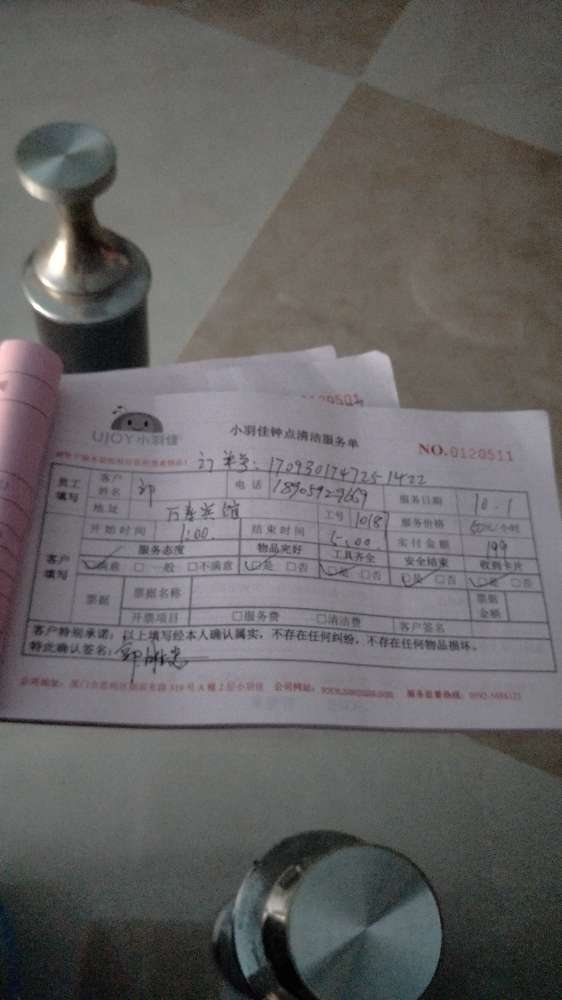 UJOY小羽佳
小羽佳钟点清洁服务单
NO.0120511
订单号: 170930174725 1422
员工填写 客户姓名 郭 电话 服务日期 10.1
地址 万寿宾馆 工号 1018 服务价格 50元/小时
开始时间 1:00 结束时间 5:00 实付金额 199
客户填写 服务态度 物品完好 工具齐全 安全结束 收到卡片
满意 □一般 □不满意 □是 □否 □是 □否 □是 □否 □是 □否
票据 票据名称 票据金额
开票项目 □服务费 □清洁费 客户签名
客户特别承诺：以上填写经本人确认属实，不存在任何纠纷，不存在任何物品损坏。
特此确认签名：